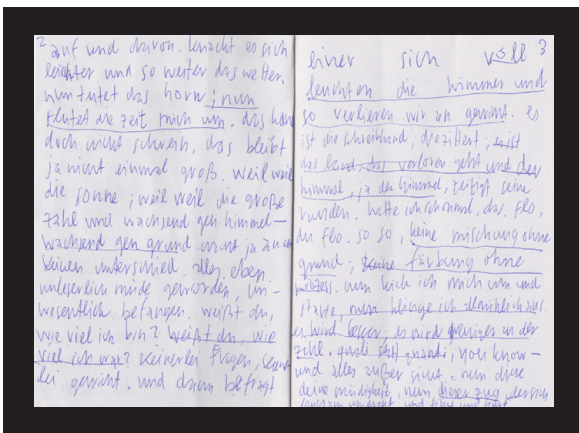 2
auf und davon. knackt es sich
leichter und so weiter das wetter,
nun tutet das horn; nun
flutet die zeit mich um. das kann
doch nicht schwein, das bleibt
ja nicht einmal groß. weil weil
die sonne; weil weil die große
zahl und wachsend gen himmel –
wachsend gen grund macht ja auch
keinen unterschied. alles eben
unleserlich müde geworden, un-
wesentlich befangen. weißt du,
wie viel ich bin? weißt du, wie
viel ich war? keinerlei fragen,
lei gewicht. und dann befragt
3
einer sich voll
leuchten die himmel und
so verlieren wir an gewicht. es
ist die schreibhand, die zittert; es ist
das land, das verloren geht und der
himmel, ja der himmel, zeitigt seine
runden. hatte ich schonmal, das. flo,
du flo. so so, keine mischung ohne
grund; keine färbung ohne
prozess. nun kick ich mich um und
starte, nun klinge ich allmählich aus.
es wird besser, es wird weniger an der
zahl. quali statt quanti, you know –
und alles außer sinnt. nun diese
deine müdigkeit, nun dieser zug, der sich
langsam und